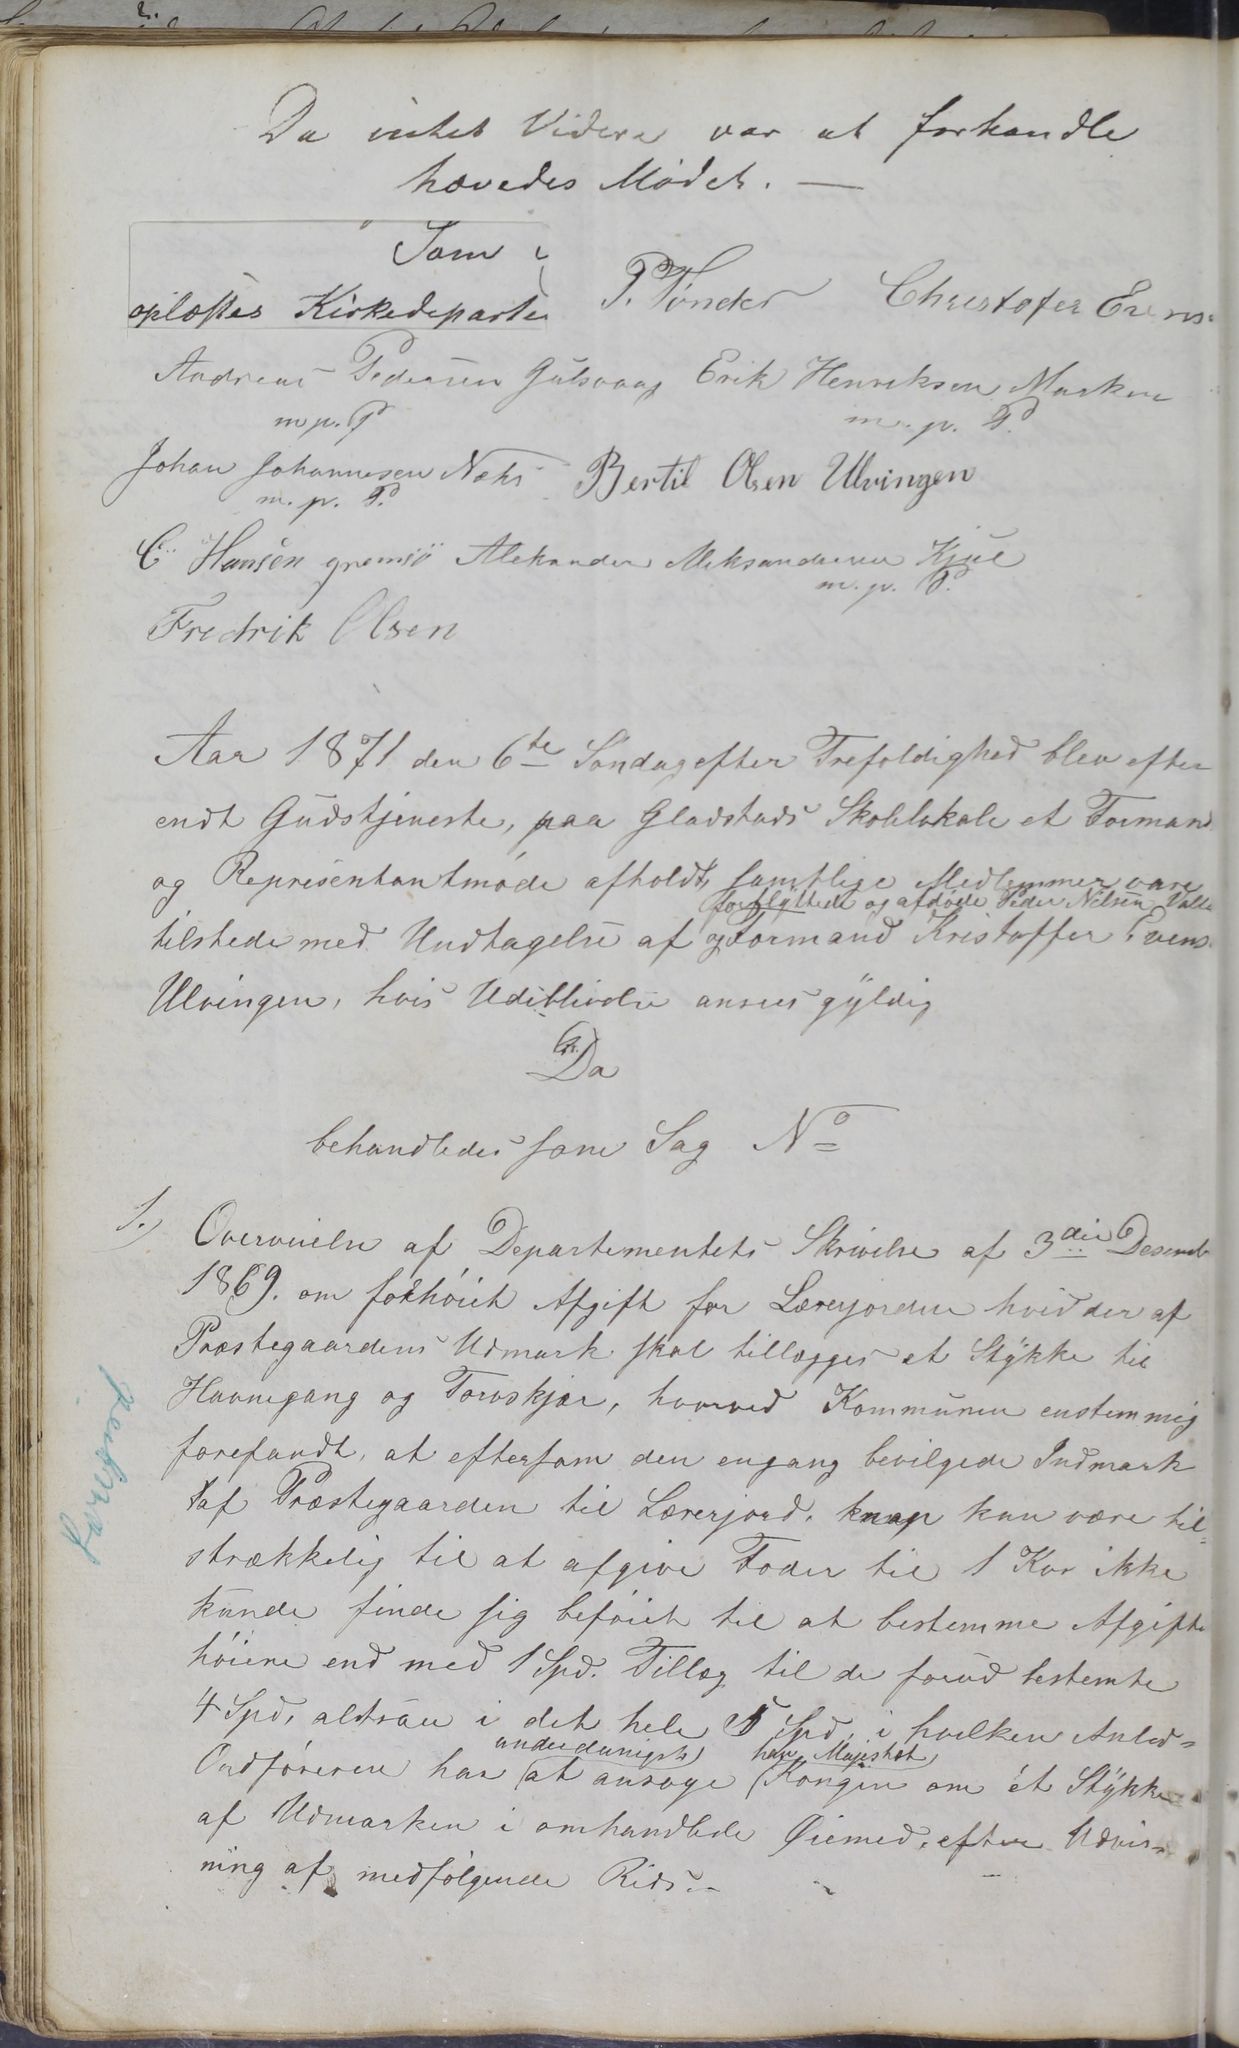 Da intet Videre var at forhandle
hævedes Mødet. —
Som
oplæstes Kirkedeparte
P. Tönder Christofer Evens.
Andreas Pedersen Gulsvaag Erik Henriksen Marken
m. p. P. m. p. P.
Johan Johannesen Næss Bertil Olsen Ulvingen
m. p. P.
C Hansen gremsö Aleksander Aleksandersen Kjul
m. p. P.
Fredrik Olsen
Aar 1871 den 6te Søndag efter Trefoldighed blev efter
endt Gudstjeneste, paa Gladstads Skolelokale et Formand
og Representantmøde afholdt, samtlige Medlemmer vare
fortflyttede og afdøde Peder Nilsen Valle
tilstede med Undtagelse af og Formand Kristoffer Evens.
Ulvingen, hvis Udeblivelse ansees gyldig
Da
behandledes som Sag No
1.) Overveielse af Departementets Skrivelse af 3die Desemb
1869. om forhøiet Afgift for Lærerjorden hvid der af
Præstegaardens Udmark skal tillægges et Stykke til
Havnegang og Torvskjær, hvorved Kommunen enstemmig
forefandt, at eftersom den engang bevilgede Indmark
af Præstegaarden til Lærerjord, knap kan være til-
strækkelig til at afgive Foder til 1 Ko ikke
kunde finde sig beføiet til at bestemme Afgifte
høiere end med 1 Spd. Tillæg til de forud bestemte
4 Spd, altsaa i det hele 5 Spd, i hvilken Anled-
underdanigst hans Majestæt
Ordføreren har at ansøge Kongen om et Stykke
af Udmarken i omhandlede Øiemed, efter Udvis-
ning af medfølgende Rids.—
Lærerjord